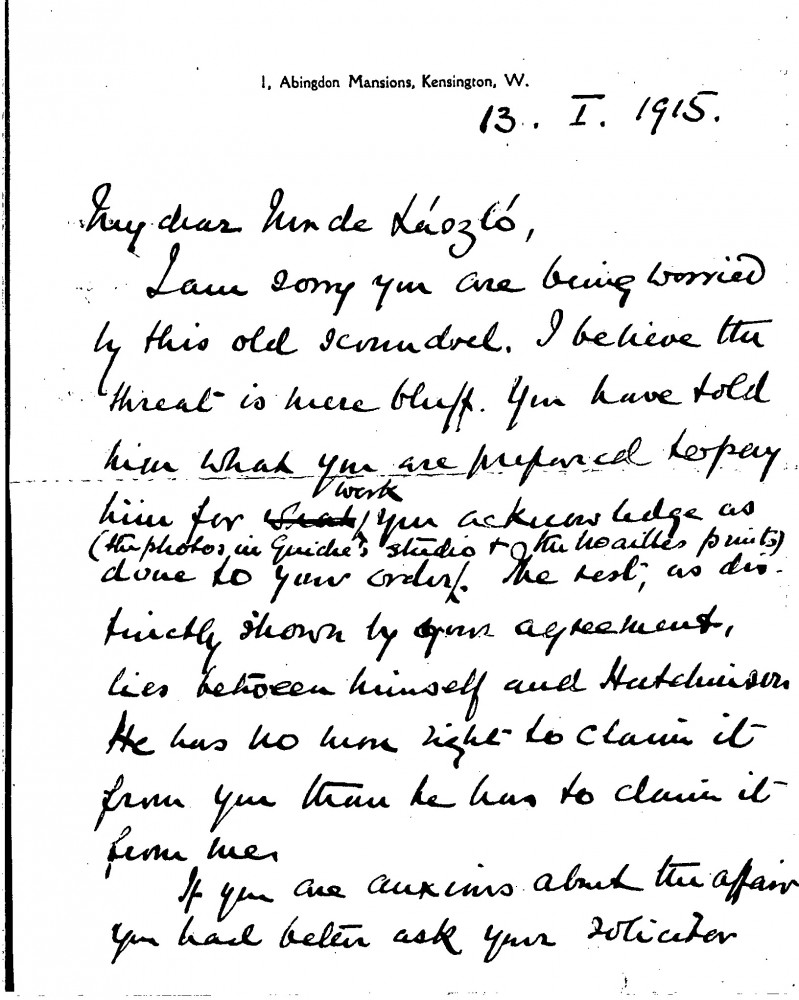 1, Abingdon Mansions, Kensington, W.
13. I. 1915.
My dear Mr de László,
I am sorry you are being worried
by this old scoundrel. I believe the
threat is mere bluff. You have told
him what you are prepared to pay
work
him for you acknowledge as
(the photos in Guiche's studio & the Noailles prints)
done to your order. The rest, as dis-
tinctly shown by your agreement,
lies between himself and Hutchinson
He has no more right to claim it
from you than he has to claim it
from me.
If you are anxious about the affair
you had better ask your solicitor